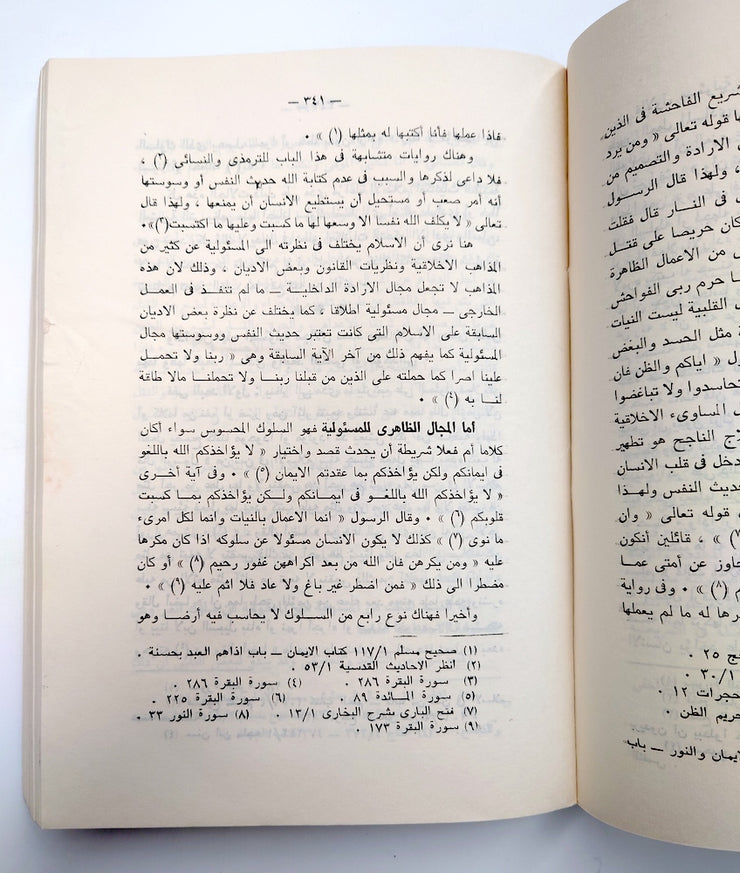 — ٣٤١ —
فاذا عملها فأنا أكتبها له بمثلها (١) » ٠
وهناك روايات متشابهة فى هذا الباب للترمذى والنسائى (٢) ،
فلا داعى لذكرها والسبب فى عدم كتابة الله حديث النفس أو وسوستها
أنه أمر صعب أو مستحيل أن يستطيع الانسان أن يمنعها ، ولهذا قال
تعالى « لا يكلف الله نفسا الا وسعها لها ما كسبت وعليها ما اكتسبت(٣)»٠
هنا نرى أن الاسلام يختلف فى نظرته الى المسئولية عن كثير من
المذاهب الاخلاقية ونظريات القانون وبعض الاديان ، وذلك لان هذه
المذاهب لا تجعل مجال الارادة الداخلية — ما لم تنفذ فى العمل
الخارجى — مجال مسئولية اطلاقا ، كما يختلف عن نظرة بعض الاديان
السابقة على الاسلام التى كانت تعتبر حديث النفس ووسوستها مجال
المسئولية كما يفهم ذلك من آخر الآية السابقة وهى « ربنا ولا تحمل
علينا اصرا كما حملته على الذين من قبلنا ربنا ولا تحملنا مالا طاقة
لنا به (٤) » ٠
أما المجال الظاهرى للمسئولية فهو السلوك المحسوس سواء أكان
كلاما أم فعلا شريطة أن يحدث قصد واختيار « لا يؤاخذكم الله باللغو
فى ايمانكم ولكن يؤاخذكم بما عقدتم الايمان (٥) » ٠ وفى آية أخرى
« لا يؤاخذكم الله باللغو فى ايمانكم ولكن يؤاخذكم بما كسبت
قلوبكم (٦) » ٠ وقال الرسول « انما الاعمال بالنيات وانما لكل امرىء
ما نوى (٧) » كذلك لا يكون الانسان مسئولا عن سلوكه اذا كان مكرها
عليه « ومن يكرهن فان الله من بعد اكراههن غفور رحيم (٨) » أو كان
مضطرا الى ذلك « فمن اضطر غير باغ ولا عاد فلا اثم عليه (٩) » ٠
وأخيرا فهناك نوع رابع من السلوك لا يحاسب فيه أيضا وهو
(١) صحيح مسلم ١١٧/١ كتاب الايمان — باب اذاهم العبد بحسنة .
(٢) انظر الاحاديث القدسية ٥٣/١ .
(٣) سورة البقرة ٢٨٦ . (٤) سورة البقرة ٢٨٦ .
(٥) سورة المائدة ٨٩ . (٦) سورة البقرة ٢٢٥ .
(٧) فتح البارى بشرح البخارى ١٣/١ . (٨) سورة النور ٣٣ .
(٩) سورة البقرة ١٧٣ .
شريع الفاحشة فى الذين
ها قوله تعالى « ومن يرد
الارادة والتصميم من
، ولهذا قال الرسول
فى النار قال فقلت
كان حريصا على قتل
من الاعمال الظاهرة
ما حرم ربى الفواحش
القلبية ليست النيات
مثل الحسد والبغض
« اياكم والظن فان
تحاسدوا ولا تباغضوا
المساوىء الاخلاقية
الناجح هو تطهير
دخل فى قلب الانسان
حديث النفس ولهذا
قوله تعالى « وان
» ، قائلين أنكون
جاوز عن أمتى عما
(٨) » ٠ وفى رواية
ها له ما لم يعملها
٢٥ .
٣٠/١ .
حجرات ١٢ .
حريم الظن .
الايمان والنور — باب